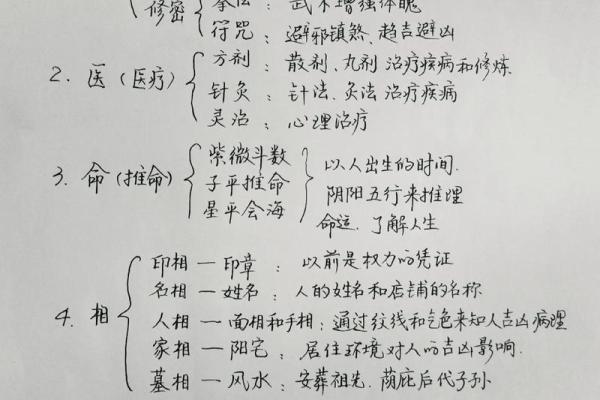 拳法：武术增强体魄
修密
符咒：避邪镇煞、趋吉避凶
2. 医（医疗）
方剂：散剂、丸剂 治疗疾病和修炼
针灸：针法、灸法 治疗疾病
灵治：心理治疗
3. 命（推命）
紫微斗数
子平推命
星平会海
以人出生的时间.
阴阳五行来推理
命运. 了解人生
4. 相
印相 — 印章：以前是权力的凭证
名相 — 姓名：人的姓名和店铺的名称
人相 — 面相和手相：通过纹线和气色来知人吉凶病理
家相 — 阳宅：居住环境对人的吉凶影响.
墓相 — 风水：安葬祖先. 荫庇后代子孙